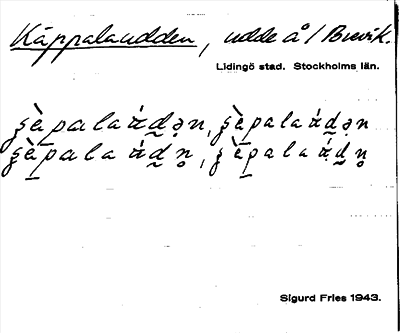 Käppalaudden, udde å / Brevik.
Lidingö stad. Stockholms län.
ʂɛ̀palaɑ́d̰ən, ʂɛ̀palaɑ́d̰ən
ʂɛ̀palaɑ́d̰n̥, ʂɛ̀palaɑ́d̰n̥
Sigurd Fries 1943.